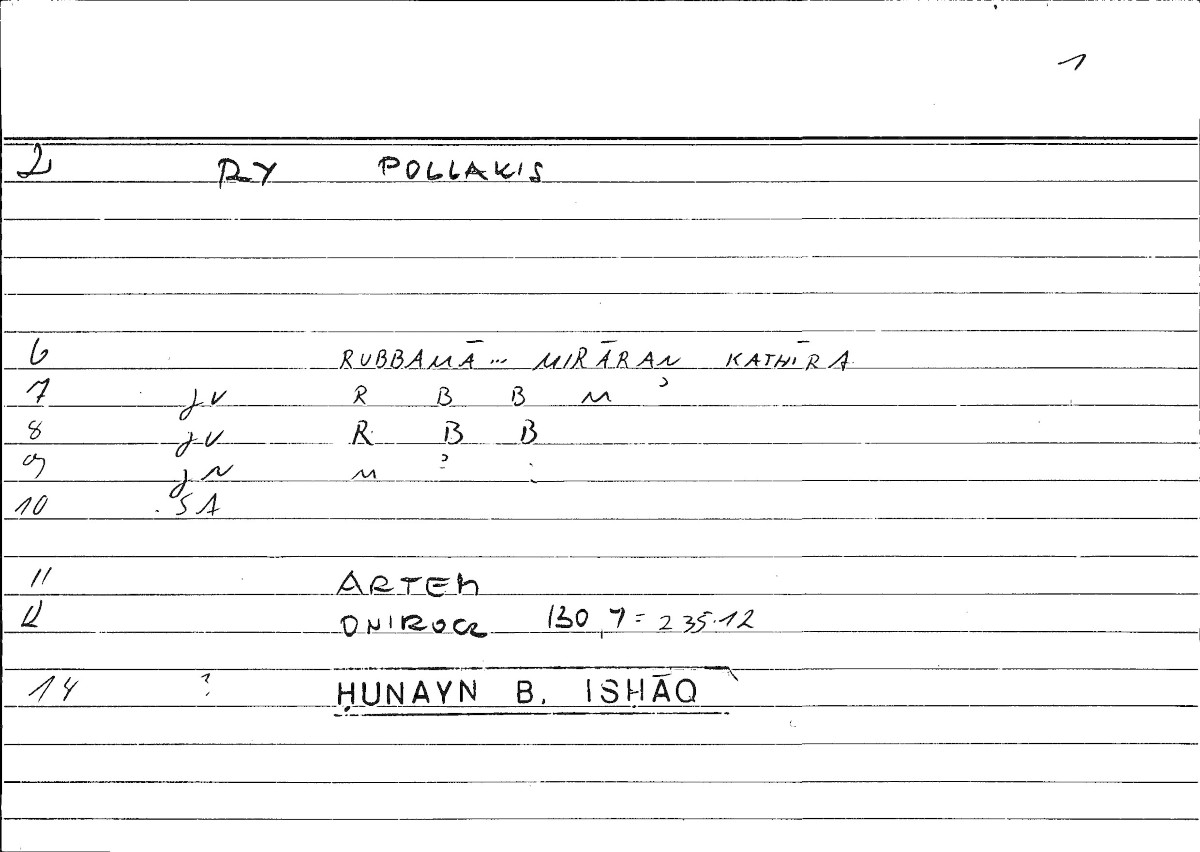 1
2 RY POLLAKIS
6 RUBBAMĀ... MIRĀRAN KATHĪRA
7 JV R B B M ʾ
8 JV R B B
9 JN M ʾ :
10 SA
11 ARTEM
12 ONIROCR 130,7 = 235.12
14 ? ḤUNAYN B. ISḤĀQ